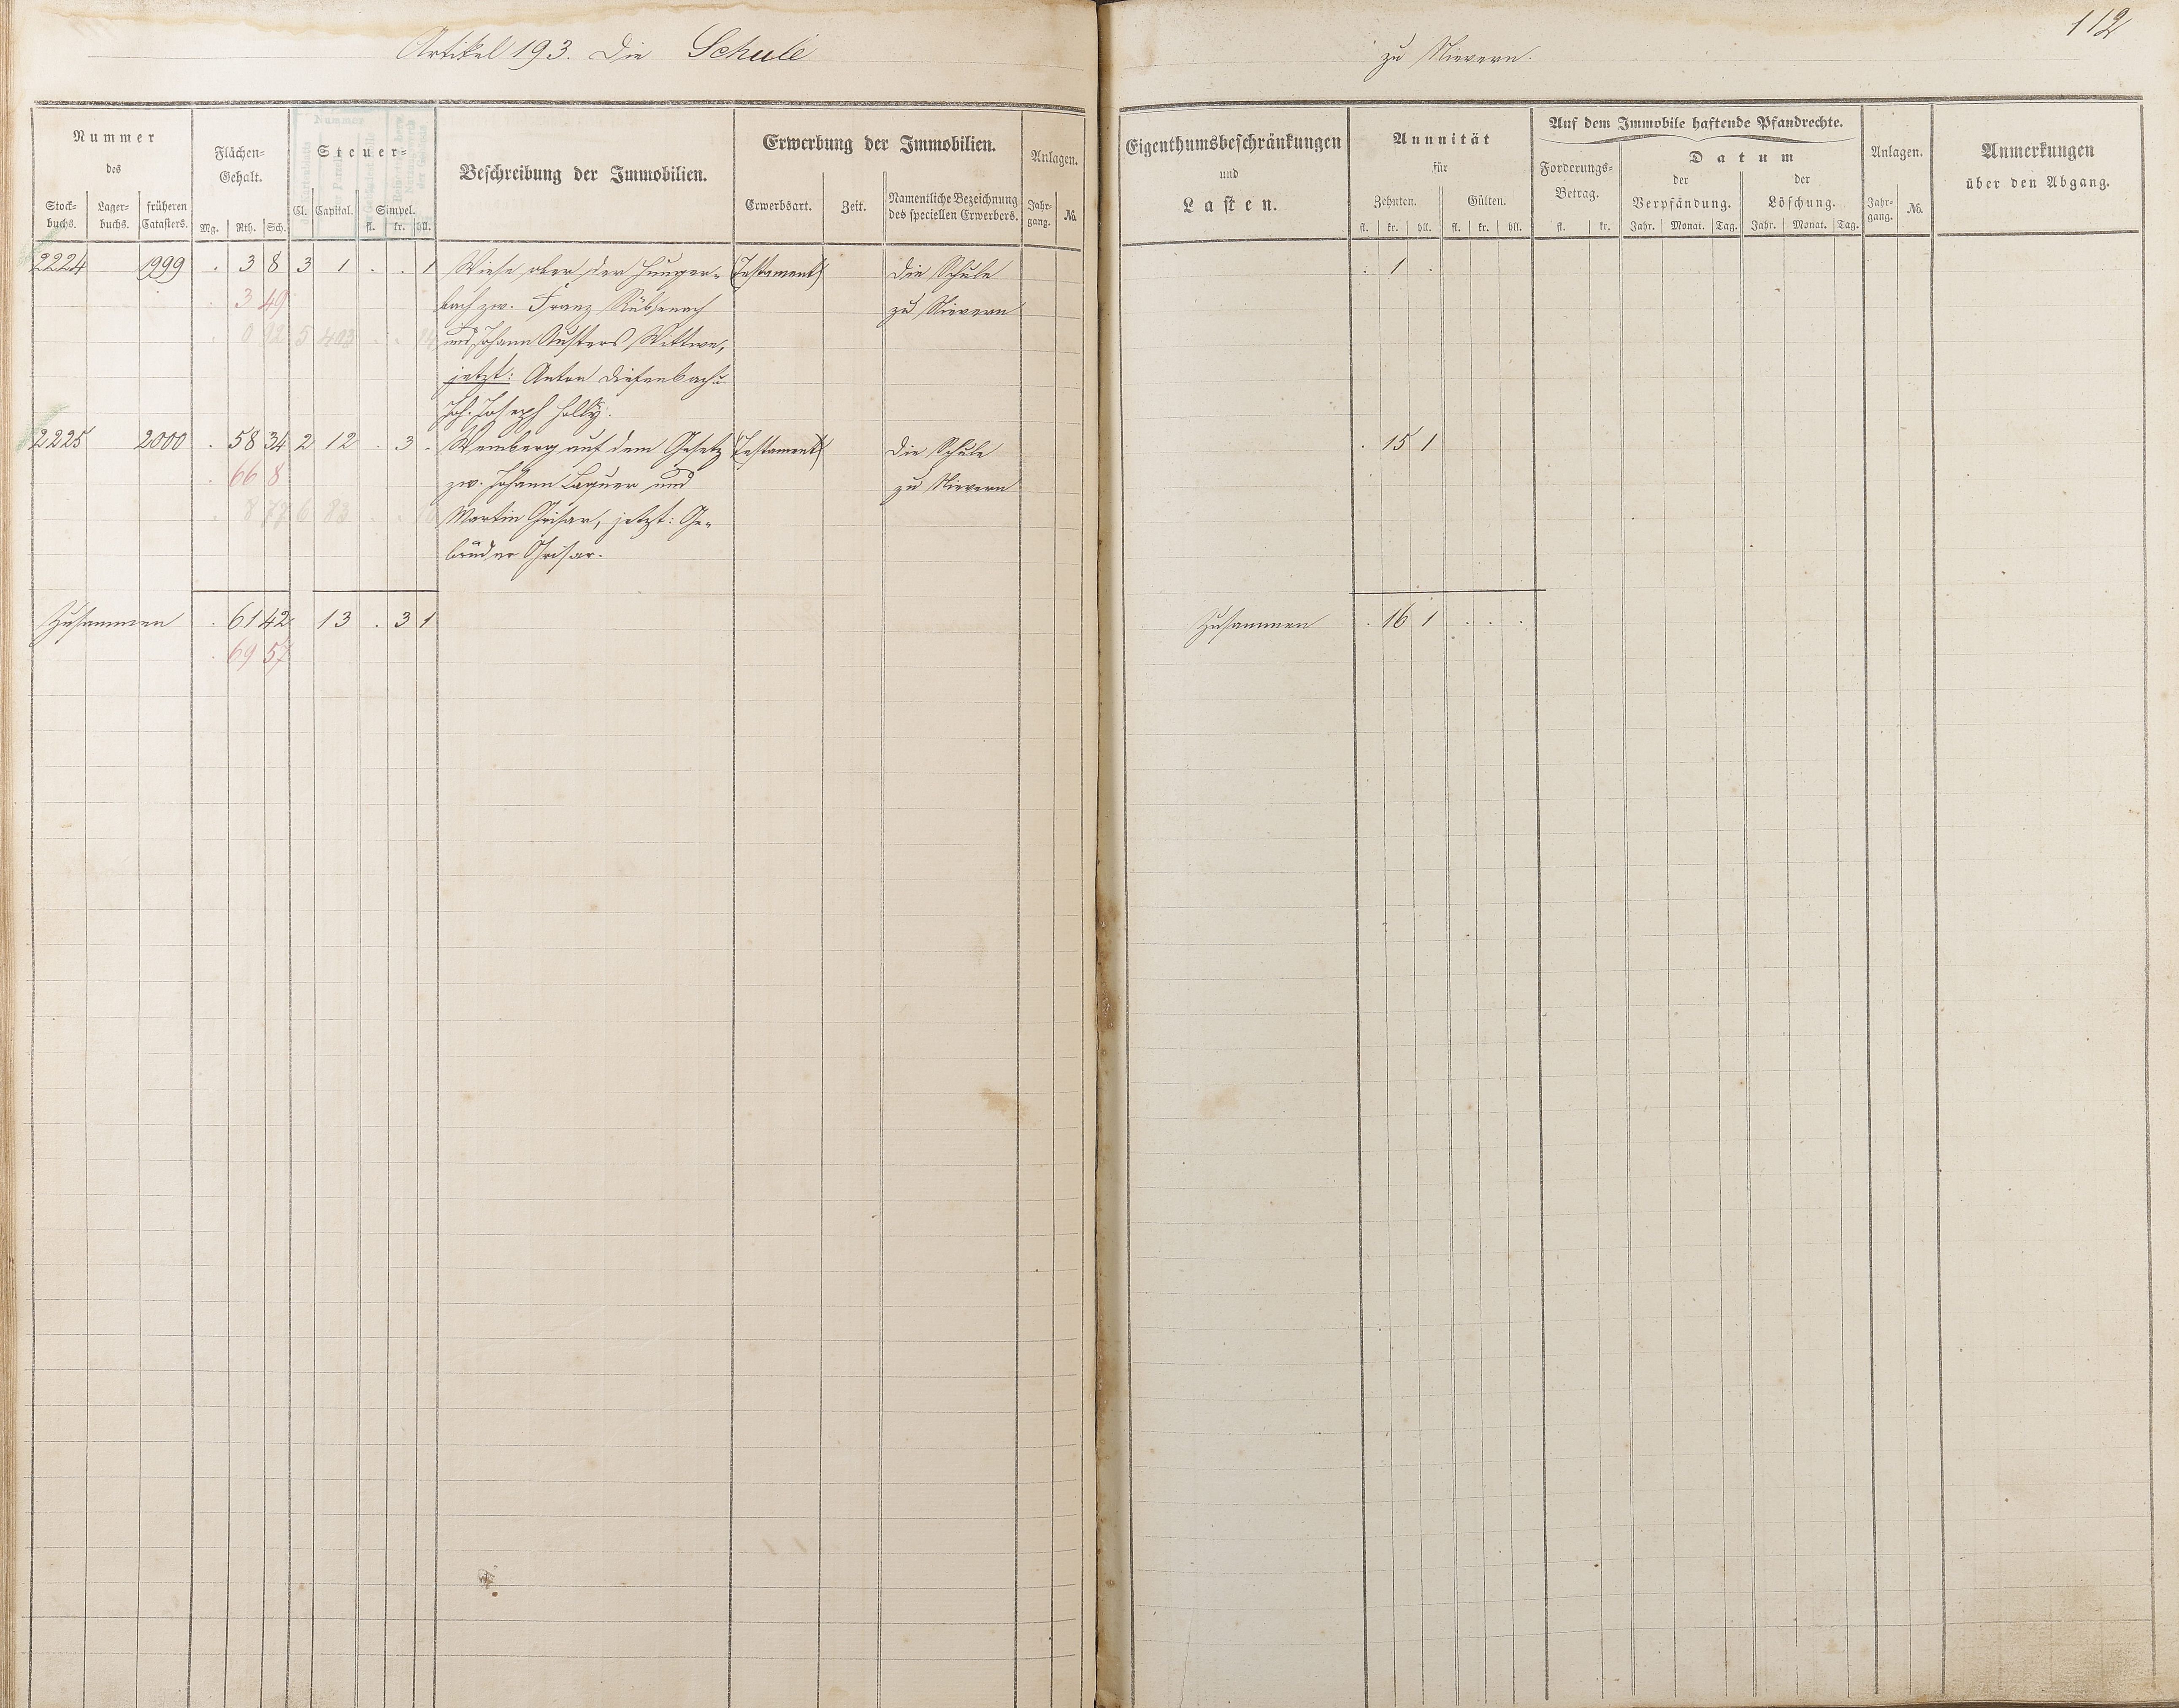 112
Artikel 193. Die Schule zu Nievern.
Nummer des
Stock- buchs. Lager- buchs. früheren Catasters.
Flächen- Gehalt.
Mg. Rth. Sch.
Steuer-
Cl. Capital. Simpel.
fl. kr. hll.
Beschreibung der Immobilien.
Erwerbung der Immobilien.
Erwerbsart. Zeit. Namentliche Bezeichnung des speciellen Erwerbers.
Anlagen.
Jahr- gang. No.
Eigenthumsbeschränkungen und Lasten.
Annuität für
Zehnten. Gülten.
fl. kr. hll. fl. kr. hll.
Auf dem Immobile haftende Pfandrechte.
Forderungs- Betrag.
fl. kr.
Datum
der Verpfändung. der Löschung.
Jahr. Monat. Tag. Jahr. Monat. Tag.
Anlagen.
Jahr- gang. No.
Anmerkungen über den Abgang.
2224 1999 . 3 8 3 1 . . 1 Wiese ober der Hunger- Testament Die Schule . 1 .
. 3 49 bach zw. Franz zu Nievern
. 0 92 5 403 . . und Johann Wittwe,
jetzt: Anton Diefenbach u.
Joh. Joseph Holly.
2225 2000 . 58 34 2 12 . 3 . Weinberg auf dem Gesetz Testament Die Schule . 15 1
. 66 8 zw. Johann und zu Nievern
. 8 77 6 83 . . Martin Grisar, jetzt: Ge-
brüder Grisar.
Zusammen . 61 42 13 . 3 1 Zusammen . 16 1 . . .
. 69 57